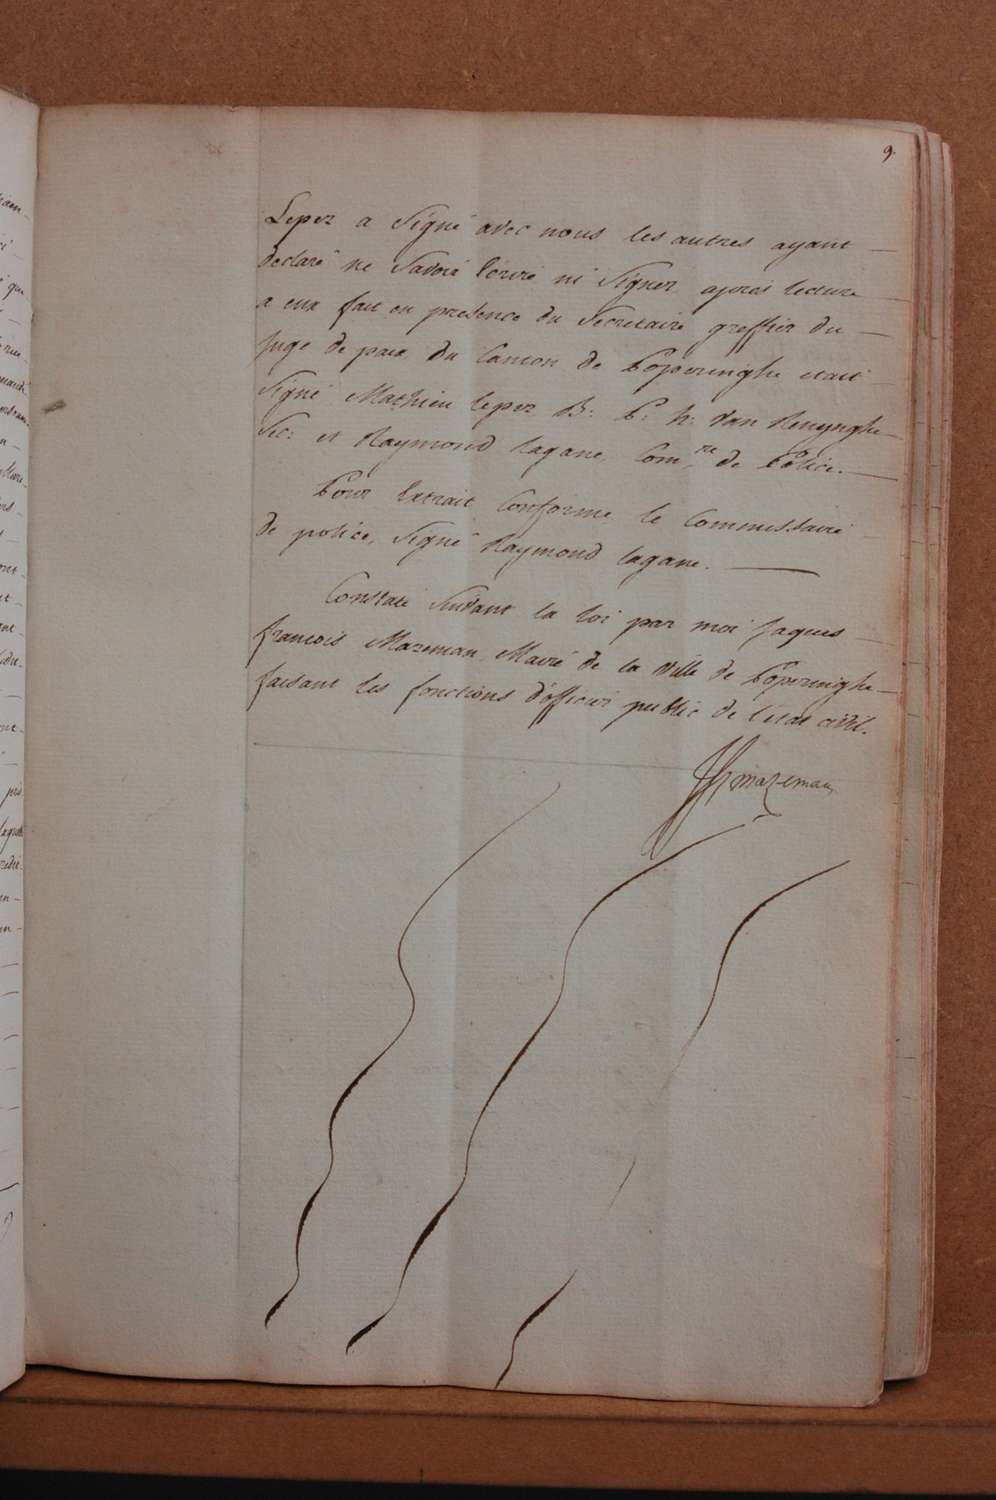 9.
Lepez a Signé avec nous les autres ayant
declaré ne Savoir Ecrire ni Signer après lecture
a eux fait en presence du Secretaire greffier du
Juge de paix du Canton de Poperinghe etait
Signé Mathieu lepez B: P: h: Van Renynghe
Sec: et Raymond lagane Com.re de Police.
Pour Extrait Conforme le Commissaire
de police, Signé Raymond lagane.
Constaté Suivant la loi par moi Jaques
francois Mazeman Maire de la Ville de Poperinghe
faisant les fonctions d'officier public de l'etat civil.
JF mazeman